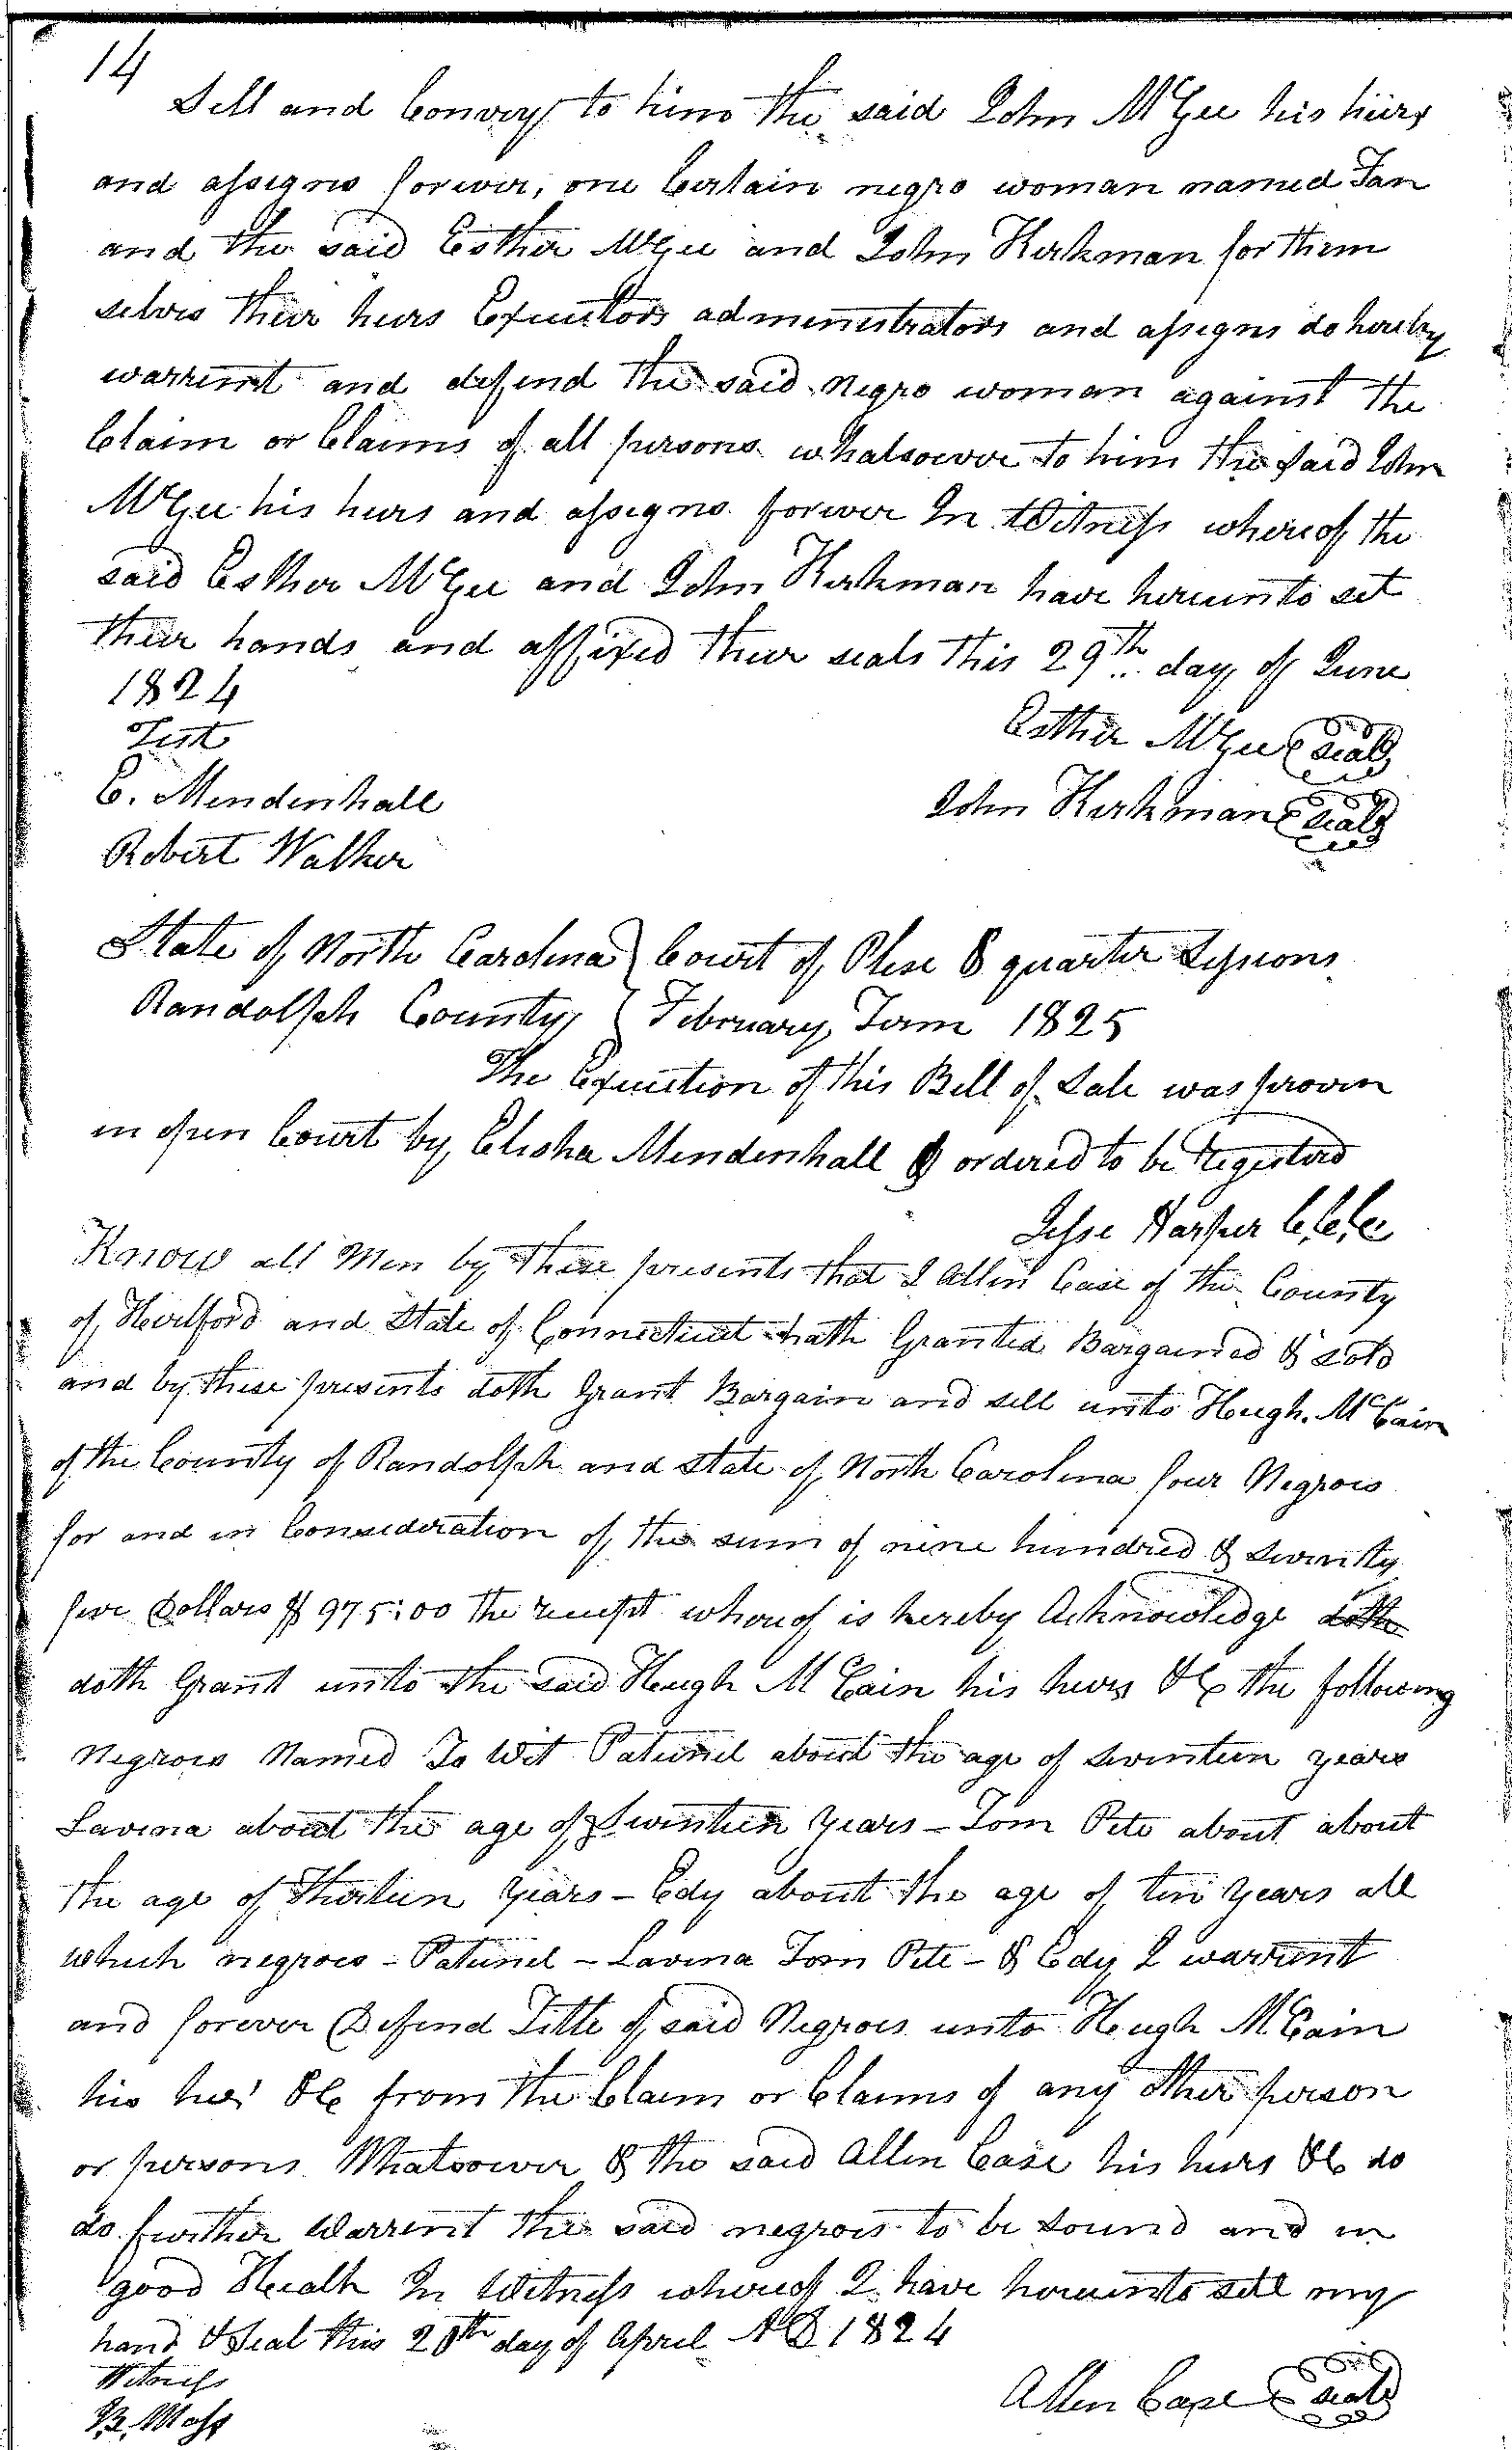 14
Sell and Convey to him the said John McGee his heirs
and assigns forever, one Certain negro woman named Fan
and the said Esther McGee and John Kirkman for them
selves their heirs Executors administrators and assigns do hereby
warrent and defend the said Negro woman against the
Claim or Claims of all persons whatsoever to him the said John
McGee his heirs and assigns forever In Witness whereof the
said Esther McGee and John Kirkman have hereunto set
their hands and affixed their seals this 29th day of June
1824
Test
Esther McGee seal
E. Mendenhall
John Kirkman seal
Robert Walker
State of North Carolina } Court of Plese & quarter Sessions
Randolph County { February Term 1825
The Execution of this Bill of Sale was proven
in open Court by Elisha Mendenhall & ordered to be Registerd
Jesse Harper C.C.C.
Know all Men by these presents that I Allen Case of the County
of Hartford and State of Connecticut hath Granted Bargained & Sold
and by these presents doth Grant Bargain and sell unto Hugh McCain
of the County of Randolph and State of North Carolina four Negroes
for and in Consideration of the sum of nine hundred & Seventy
five Dollars $975:00 the receipt whereof is hereby Acknowledge doth
doth Grant unto the said Hugh McCain his heirs &C the following
Negroes Named To Wit about the age of Seventeen years
Lavina about the age of Seventeen years - Tom Pete about about
the age of Thirteen years - Edy about the age of ten years all
which negroes - - Lavina Tom Pete - & Edy I warrent
and forever Defend Title of said Negroes unto Hugh McCain
his &C from the Claim or Claims of any other person
or persons Whatsoever & the said Allen Case his heirs &C do
do further Warrent the said negroes to be sound and in
good Health In Witness whereof I have hereunto sett my
hand & Seal this 20th day of April AD 1824
Witness
Allen Case seal
B. Moss